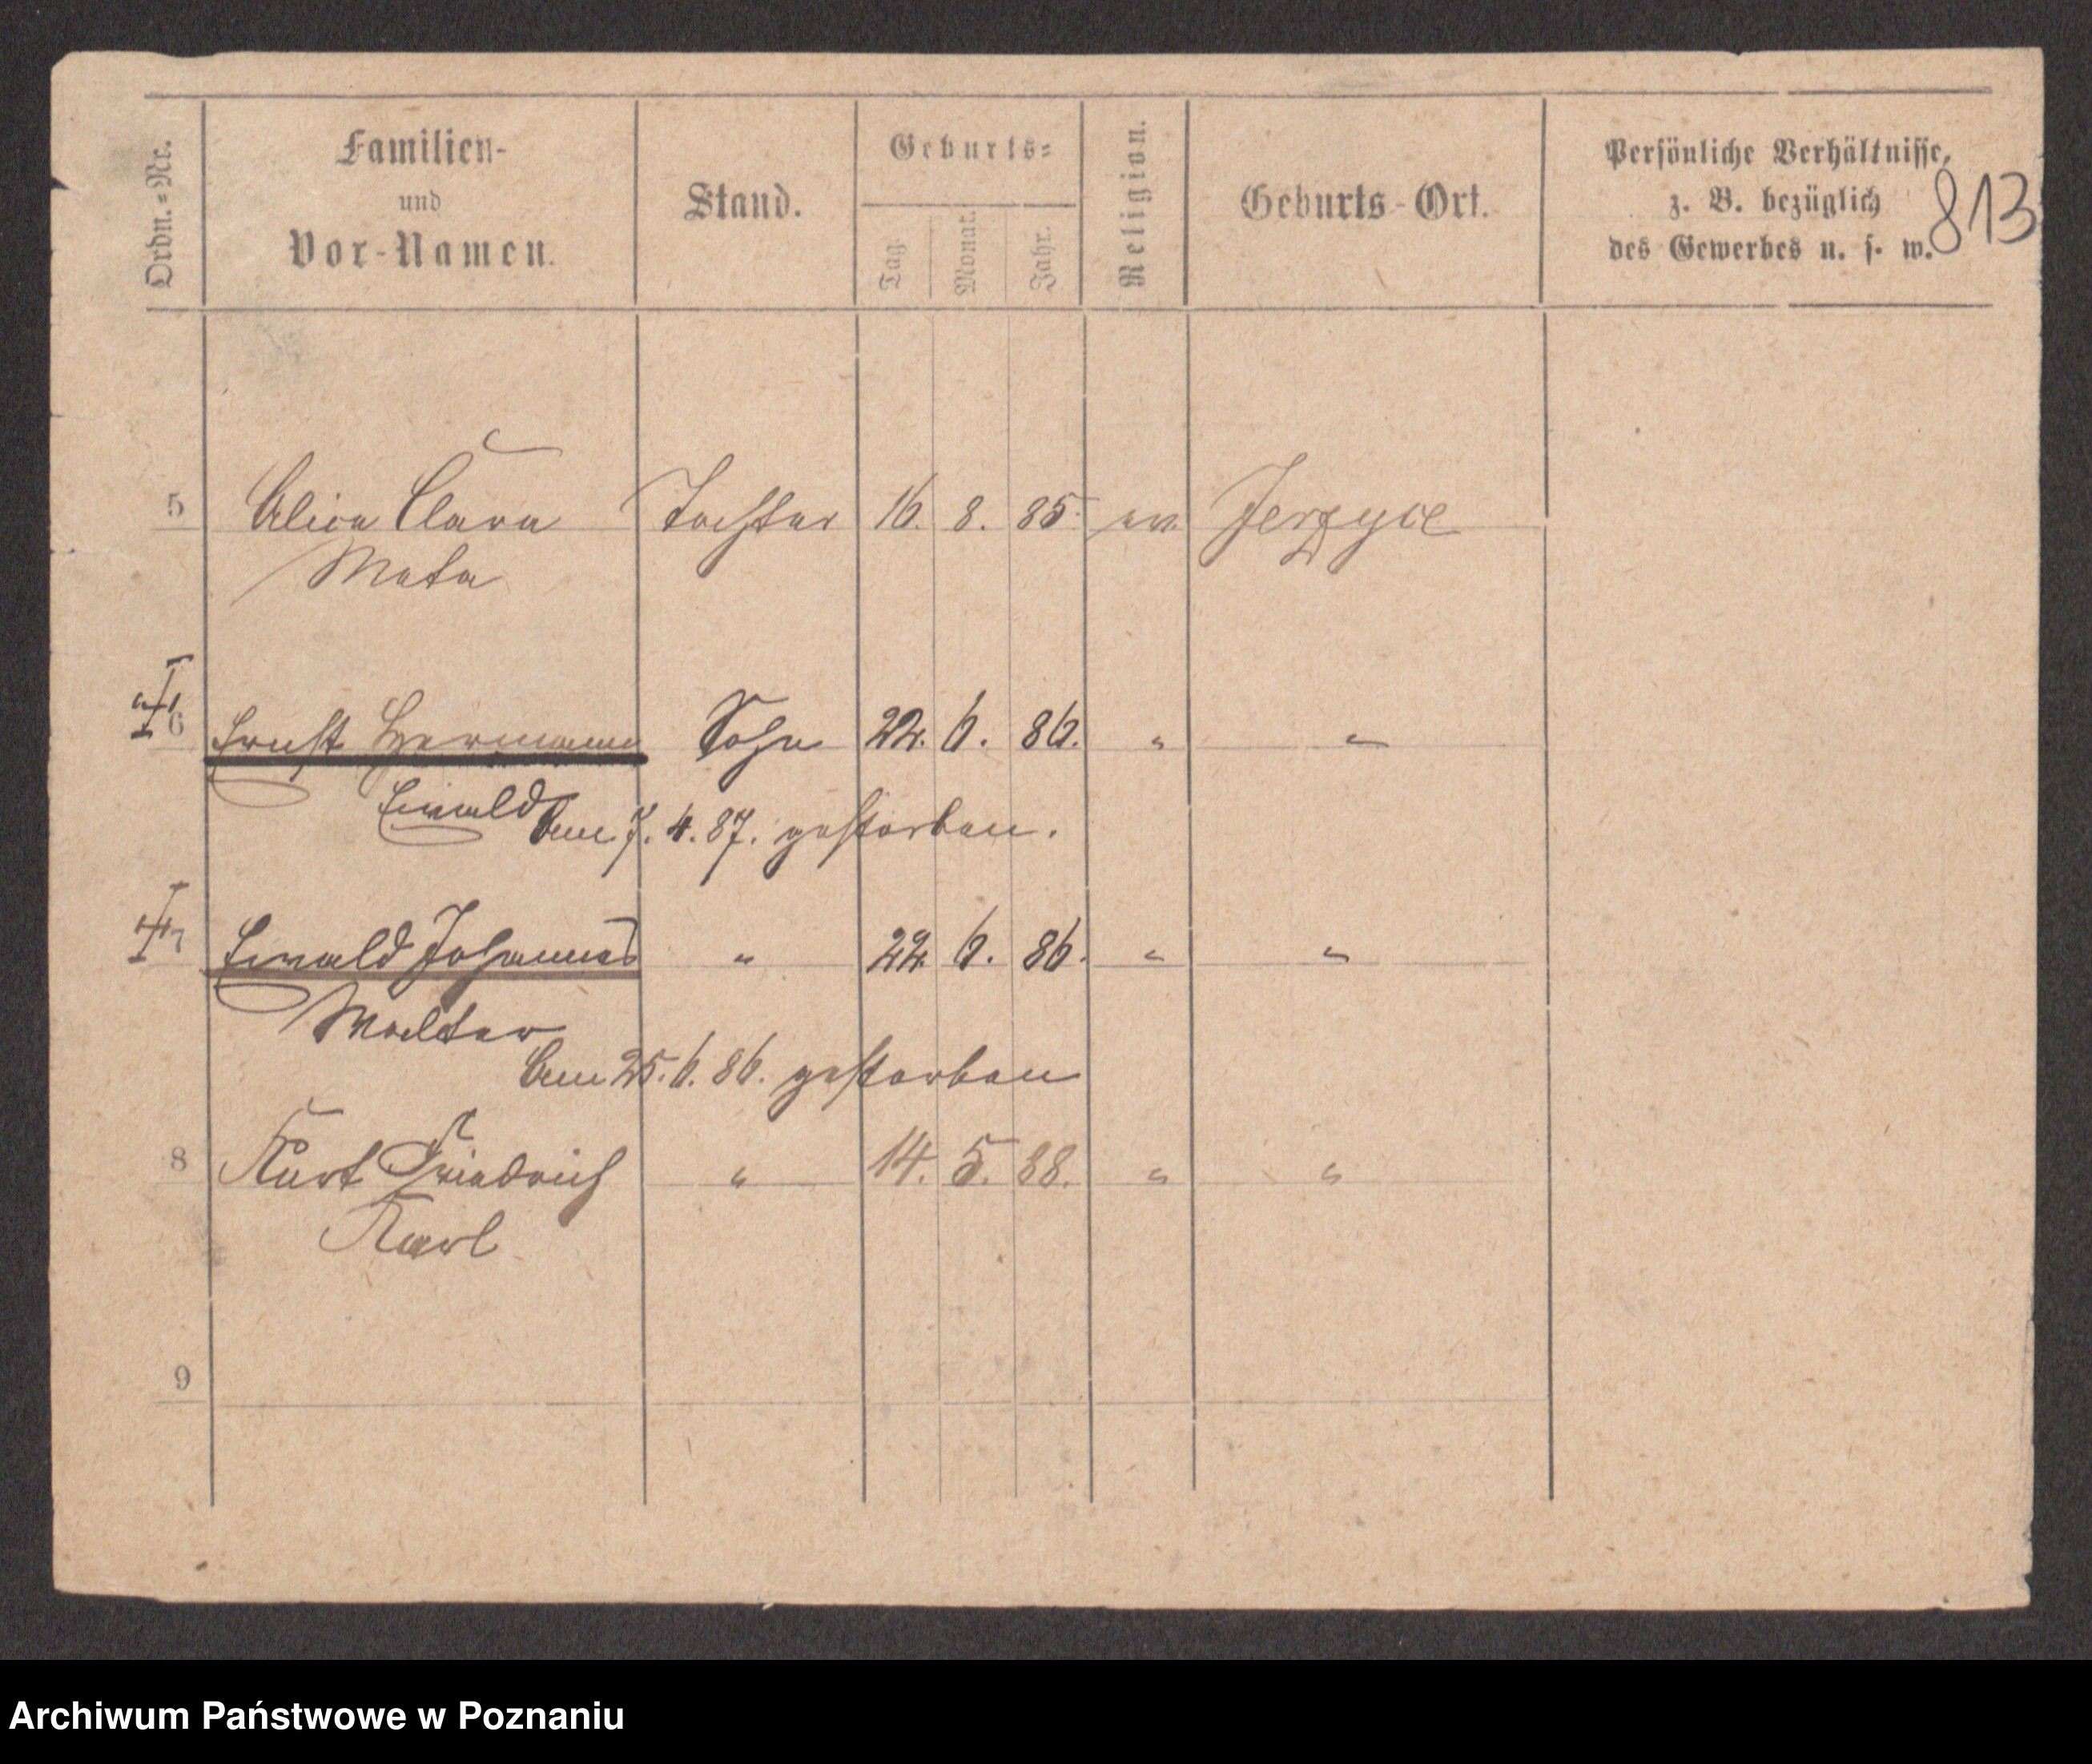 Ordn.=Nr.
Familien-
und
Vor-Namen.
Stand.
Geburts=
Tag.
Monat.
Jahr.
Religion.
Geburts-Ort.
Persönliche Verhältnisse,
z. B. bezüglich
des Gewerbes u. s. w.
813
5 Alice Clara Tochter 16. 8. 85. ev. Jerzyce
Meta
6 Ernst Hermann Sohn 22. 6. 86. " "
Ewald
Am 7. 4. 87. gestorben.
7 Ewald Johannes " 22. 6. 86. " "
Walter
Am 25. 6. 86. gestorben
8 Kurt Friedrich " 14. 5. 88. " "
Karl
9
Archiwum Państwowe w Poznaniu